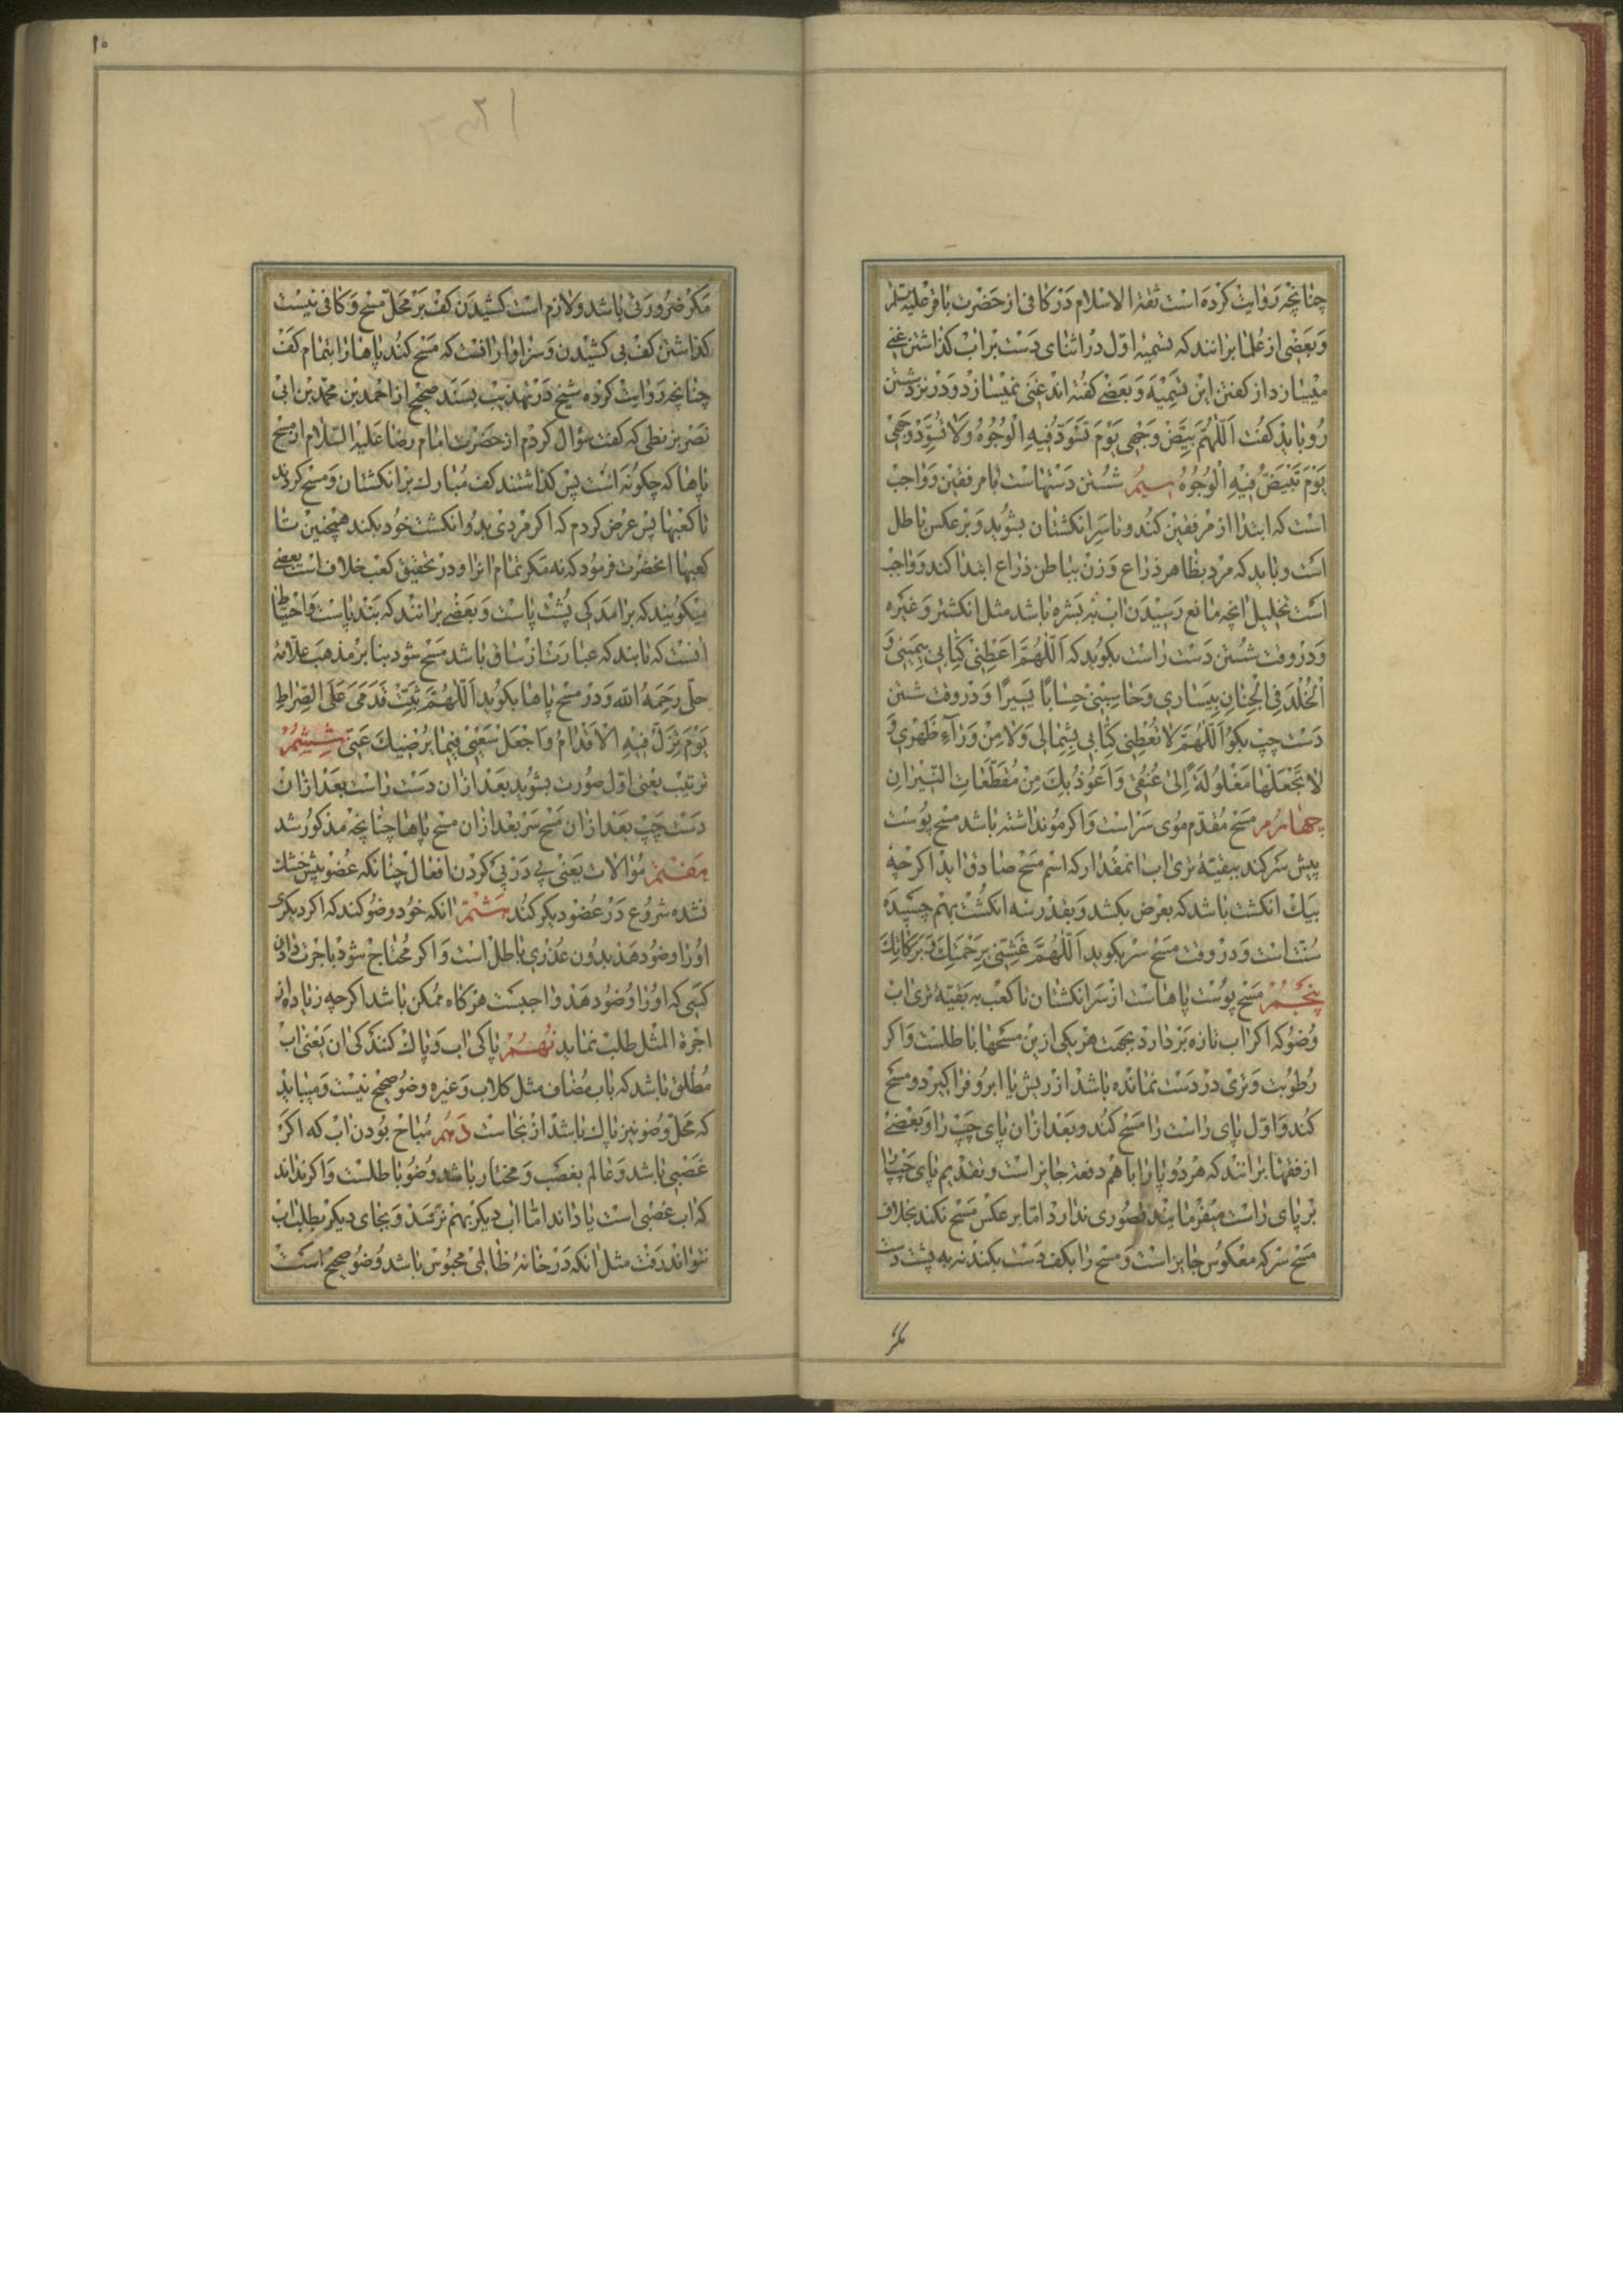 چنانچه روایت کرده است ثقة الاسلام در کافی از حضرت باقر علیه السلم
و بعضی از علما برانند که تسمیهٔ اول در اثنای دست براب کذاشتن غنی
میسازد از کفتن این تسمیه و بعضی کفته اند غنی نمیسازد و در نزد شستن
رو باید کفت اَللّهُمَّ بَیِّضْ وَجْهی یَوْمَ تَسْوَدُّ فیهِ الْوُجُوهُ وَلا تُسَوِّدْ وَجْهی
یَوْمَ تَبْیَضُّ فیهِ الْوُجُوهُ سیم شستن دستهاست با مرفقین و واجب
است که ابتدا از مرفقین کند و تا سر انکشتان بشوید و بر عکس باطل
است و باید که مرد بظاهر ذراع و زن بباطن ذراع ابتدا کند و واجب
است تخلیل انچه مانع رسیدن اب به بشره باشد مثل انکشتر و غیره
و در وقت شستن دست راست بکوید که اَللّهُمَّ اَعْطِنی کِتابی بِیَمینی وَ
الْخُلْدَ فِی الْجِنانِ بِیَساری وَحاسِبْنی حِسابًا یَسیرًا و در وقت شستن
دست چپ بکو اَللّهُمَّ لا تُعْطِنی کِتابی بِشِمالی وَلا مِنْ وَرآءِ ظَهْری وَ
لا تَجْعَلْها مَغْلُولَةً اِلی عُنُقی وَاَعُوذُ بِكَ مِنْ مُقَطَّعاتِ النّیرانِ
چهارم مسح مقدم موی سر است و اکر مو نداشته باشد مسح پوست
پیش سر کند ببقیهٔ تری اب انمقدار که اسم مسح صادق اید اکر چه
بیک انکشت باشد که بعرض بکشد و بقدر سه انکشت بهم چسپیده
سنت است و در وقت مسح سر بکوید اَللّهُمَّ غَشِّنی بِرَحْمَتِكَ وَبَرَکاتِكَ
پنجم مسح پوست پاهاست از سر انکشتان تا کعب به بقیهٔ تری اب
وضو که اکر اب تازه بردارد بجهت هر یکی ازین مسحها باطلست و اکر
رطوبت و تری در دست نمانده باشد از ریش یا ابرو فرا کیرد و مسح
کند و اول پای راست را مسح کند و بعد ازان پای چپ را و بعضی
از فقها برانند که هر دو پا را با هم دفعة جایز است و تقدیم پای چپ را
بر پای راست میفرمایند قصوری ندارد اما بر عکس مسح نکند بخلاف
مسح سر که معکوس جایز است و مسح را بکف دست بکند نه به پشت دست
مکر
۱۰
مکر ضرورتی باشد و لازم است کشیدن کف بر محل مسح و کافی نیست
کذاشتن کف بی کشیدن و سزاوار انست که مسح کند پاها را بتمام کف
چنانچه روایت کرده شیخ در تهذیب بسند صحیح از احمد بن محمد بن ابی
نصر بزنطی که کفت سؤال کردم از حضرت امام رضا علیه السلام از مسح
پاها که چکونه است پس کذاشتند کف مبارک بر انکشتان و مسح کردند
تا کعبها پس عرض کردم که اکر مردی بدو انکشت خود بکند همچنین تا
کعبها انحضرت فرمود که نه مکر تمام انرا و در تحقیق کعب خلاف است بعضی
میکویند که برامدکی پشت پاست و بعضی برانند که بند پاست و احتیاط
انست که تا بند که عبارت از ساق باشد مسح شود بنا بر مذهب علامهٔ
حلی رحمه الله و در مسح پاها بکوید اَللّهُمَّ ثَبِّتْ قَدَمَیَّ عَلَی الصِّراطِ
یَوْمَ تَزِلُّ فیهِ الْاَقْدامُ وَاجْعَلْ سَعْیی فیما یُرْضیكَ عَنّی ششم
ترتیب یعنی اول صورت بشوید بعد ازان دست راست بعد ازان
دست چپ بعد ازان مسح سر بعد ازان مسح پاها چنانچه مذکور شد
هفتم موالات یعنی پی در پی کردن افعال چنانکه عضو پیش خشک
نشده شروع در عضو دیکر کند هشتم انکه خود وضو کند که اکر دیکری
او را وضو دهد بدون عذری باطل است و اکر محتاج شود باجرت دادن
کسی که او را وضو دهد واجبست هرکاه ممکن باشد اکرچه زیاده از
اجرة المثل طلب نماید نهم پاکی اب و پاک کنندکی ان یعنی اب
مطلق باشد که باب مضاف مثل کلاب و غیره وضو صحیح نیست و میباید
که محل وضو نیز پاک باشد از نجاست دهم مباح بودن اب که اکر
غصبی باشد و عالم بغصب و مختار باشد وضو باطلست و اکر نداند
که اب غصبی است یا داند اما اب دیکر بهم نرسد و بجای دیکر بطلب اب
نتواند رفت مثل انکه در خانهٔ ظالمی محبوس باشد وضو صحیح است